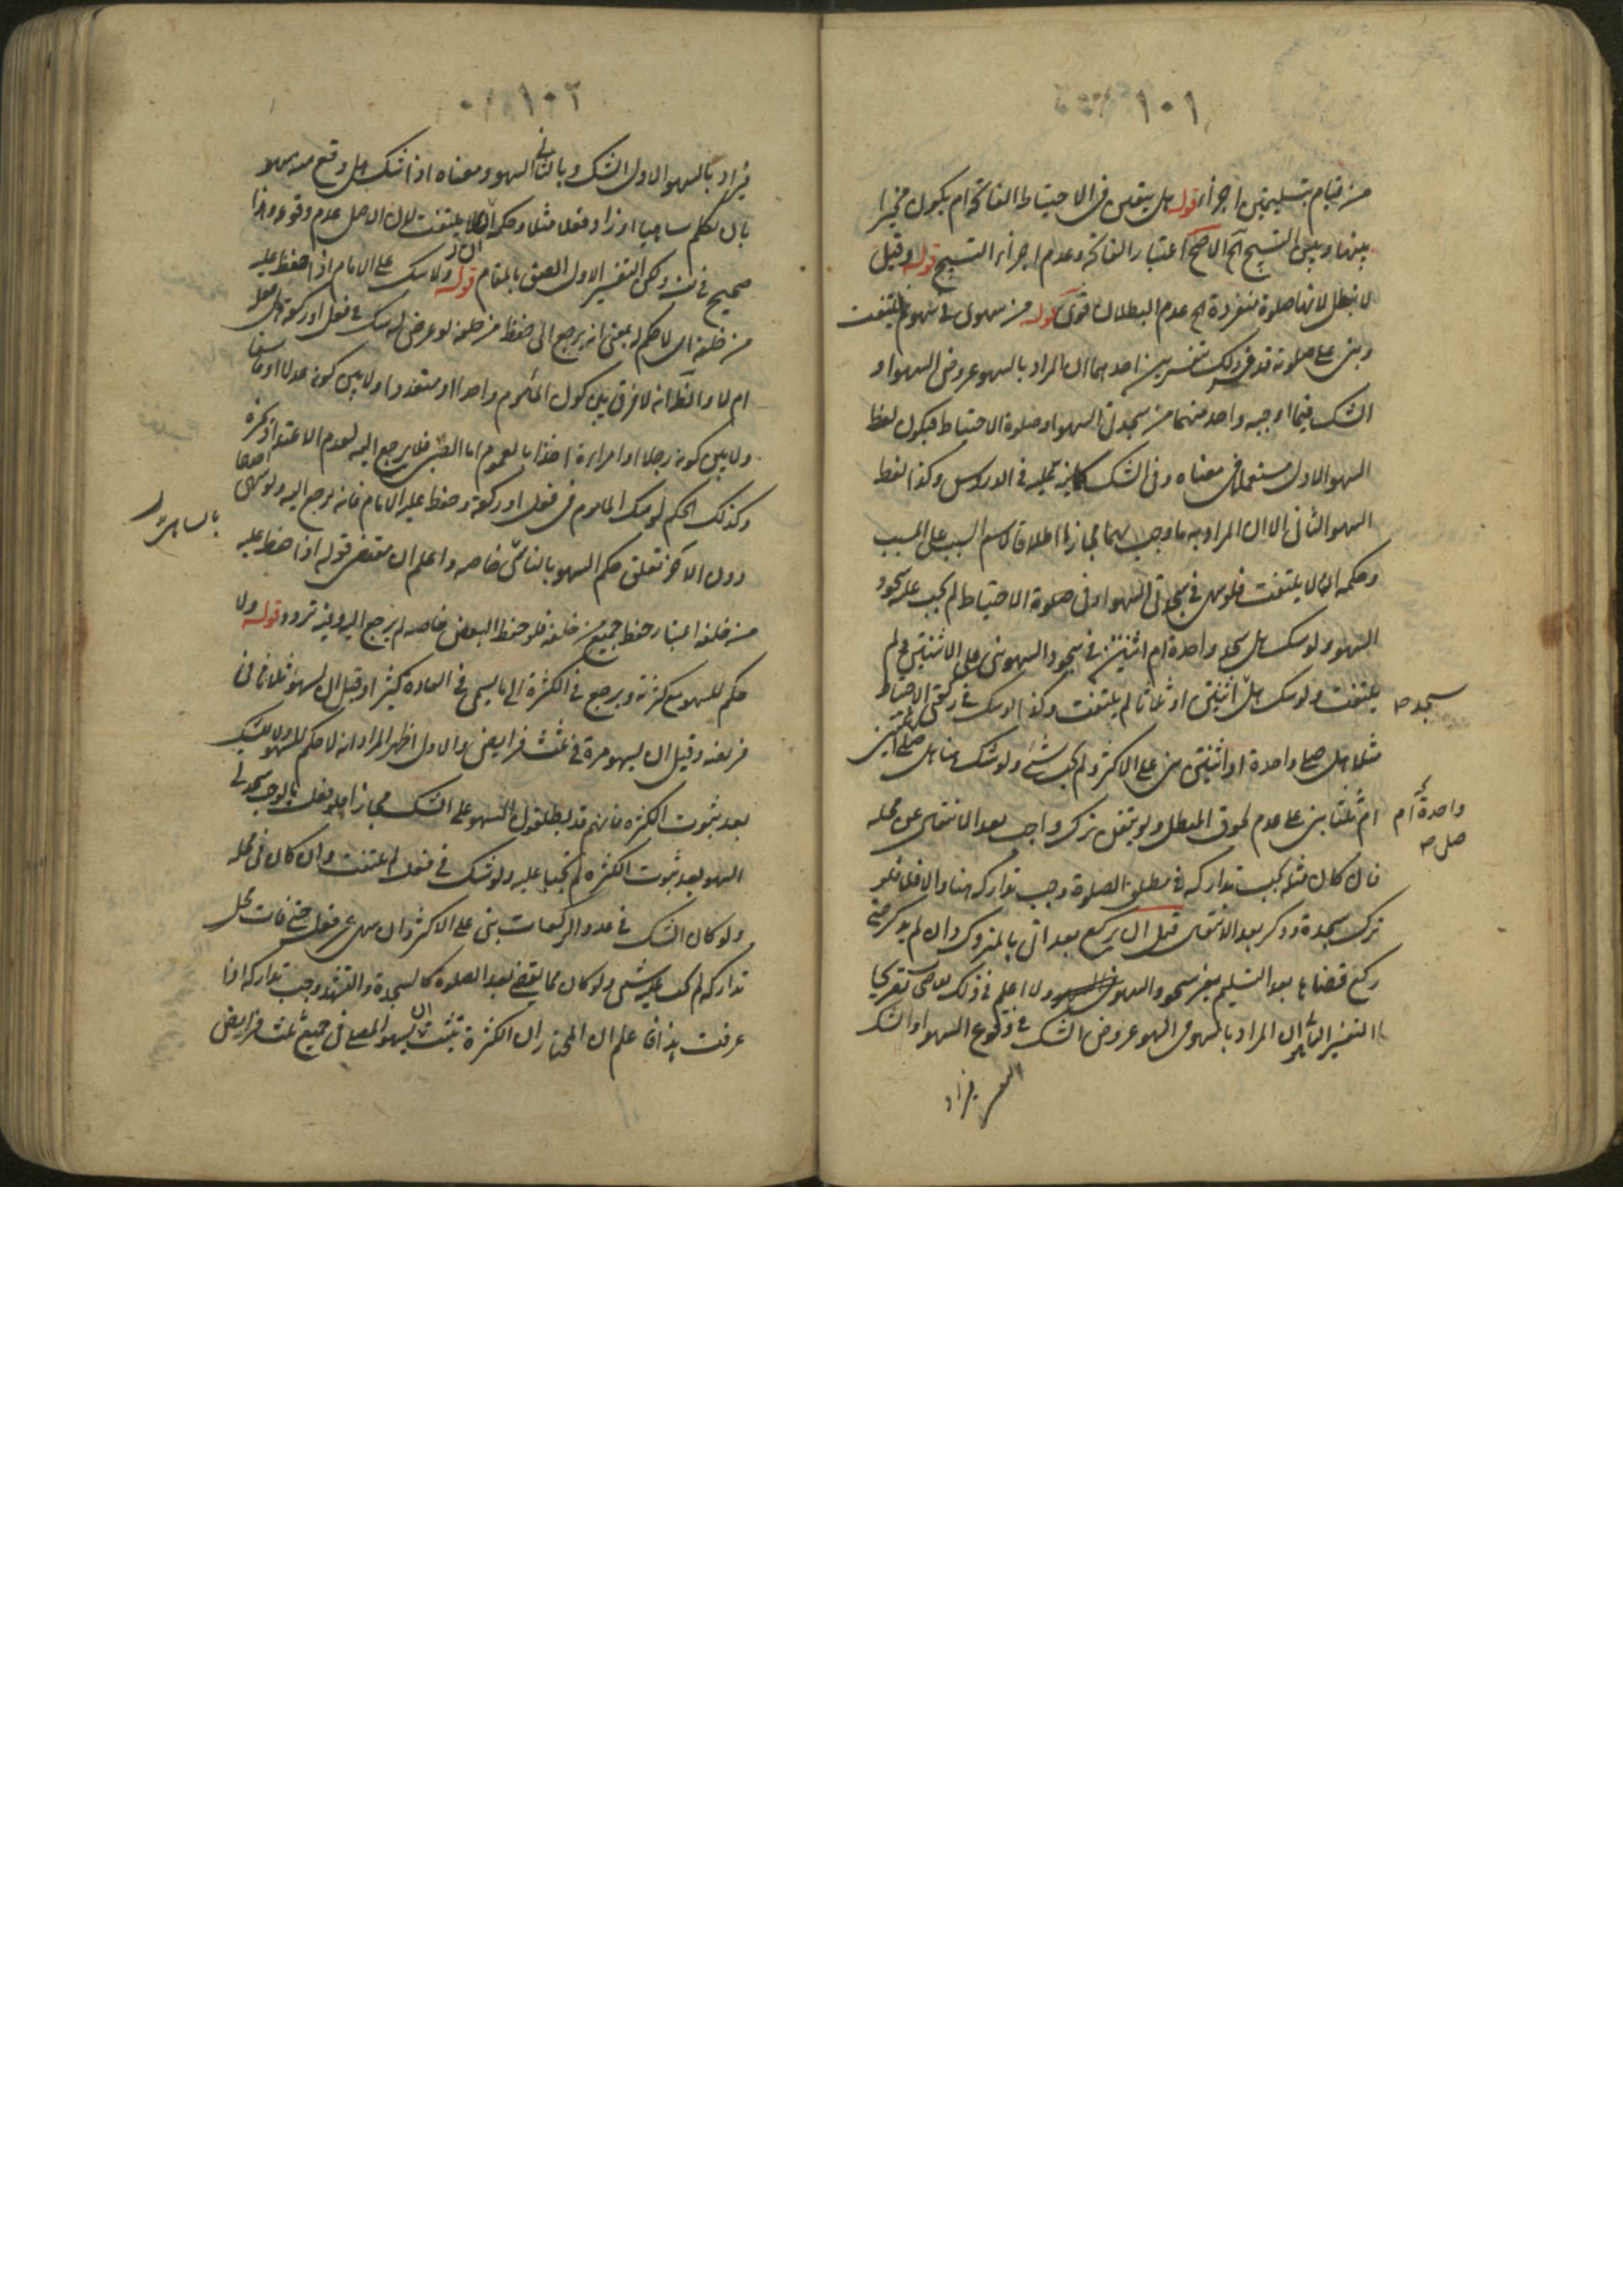 ١٠١
من قيام بتسليمتين اجزأ قوله هل يتعين في الاحتياط الفاتحة ام يكون مخيرا
بينها وبين التسبيح آه الاصح اعتبار الفاتحة وعدم اجزاء التسبيح قوله وقيل
لا تبطل لانها صلوة منفردة اه عدم البطلان قوى قوله من سهى في سهو لم يلتفت
وبنى على صلوته قد في ذلك تفسيرين احدهما ان المراد بالسهو عروض السهو او
الشك فيما اوجبه واحد منهما من سجدتى السهو او صلوة الاحتياط فيكون لفظ
السهو الاول مستعملا في معناه وفي الشك كما نبه عليه في الدروس وكذا لفظ
السهو الثانى الا ان المراد به ما وجب بهما مجازا اطلاقا لاسم السبب على المسبب
وحكمه ان لا يلتفت فلو سهى في سجدتى السهو او في صلوة الاحتياط لم يجب عليه سجود
السهو ولو شك هل سجد واحدة ام اثنتين في سجود السهو بنى على الاثنتين ولم
يلتفت ولو شك هل اثنتين او ثلاثا لم يلتفت وكذا لو شك في ركعتى الاحتياط
سجد صح
مثلا هل صلى واحدة او اثنتين بنى على الاكثر ولم يجب شئ ولو شك هنا هل صلى اثنتين
ام ثلثا بنى على عدم لحوق المبطل ولو تيقن ترك واجب بعد الانتقال عن محله
واحدة ام
صلى صح
فان كان مثله يجب تداركه في مطلق الصلوة وجب تداركه هنا والا فلا فلو
ترك سجدة وذكر بعد الانتقال قبل ان يركع بعد اتى بالمتروك وان لم يذكر حتى
ركع قضاها بعد التسليم بغير سجود السهو ولا اعلم في ذلك للاصحاب تصريحا
التفسير الثانى ان المراد بالسهو في السهو عروض الشك في وقوع السهو او الشك
فيراد
١٠٢
فيراد بالسهو الاول الشك وبالثانى السهو ومعناه اذا شك هل وقع منه سهو
بان تكلم ساهيا او زاد فعلا مثلا وحكمه ان لا يلتفت لان الاصل عدم وقوعه وهذا
صحيح في نفسه ولكن التفسير الاول الصق بالمقام قوله ولا شك على الامام اذا حفظ عليه
من خلفه اى لا حكم له بمعنى انه يرجع الى حفظ من خلفه لو عرض له شك في فعل او ركعة هل فعله
ام لا والظ انه لا فرق بين كون المأموم واحدا او متعددا ولا بين كونه عدلا او فاسقا
ولا بين كونه رجلا او امراءة اخذا بالعموم اما الصبى فلا يرجع اليه لعدم الاعتداد بخبره
وكذلك الحكم لو شك الماموم في فعل او ركعة وحفظ عليه الامام فانه يرجع اليه ولو سهى احدهما
دون الاخر تعلق حكم السهو بالناسى خاصه واعلم ان مقتضى قوله اذا حفظ عليه
بالساهى
من خلفه اعتبار حفظ جميع من خلفه فلو حفظ البعض خاصه لم يرجع اليه وفيه تردد قوله ولا
حكم للسهو مع كثرته ويرجع في الكثرة الى ما يسمى في العادة كثيرا وقيل ان يسهو ثلاثا في
فريضه وقيل ان يسهو مرة في ثلث فرايض والاول اظهر المراد انه لا حكم للسهو ولا للشك
بعد ثبوت الكثره فانهم قد يطلقون السهو على الشك مجازا فلو فعل ما يوجب سجدتى
السهو بعد ثبوت الكثره لم تجبا عليه ولو شك في فعل لم يلتفت وان كان في محله
ولو كان الشك في عدد الركعات بنى على الاكثر وان سهى عن فعل حتى فات محل
تداركه لم يجب عليه شئ ولو كان مما يقضى بعد الصلوة كالسجدة والتشهد وجب تداركه اذا
عرفت هذا فاعلم ان المختار ان الكثرة تثبت بان يسهو المصلى في جميع ثلث فرايض